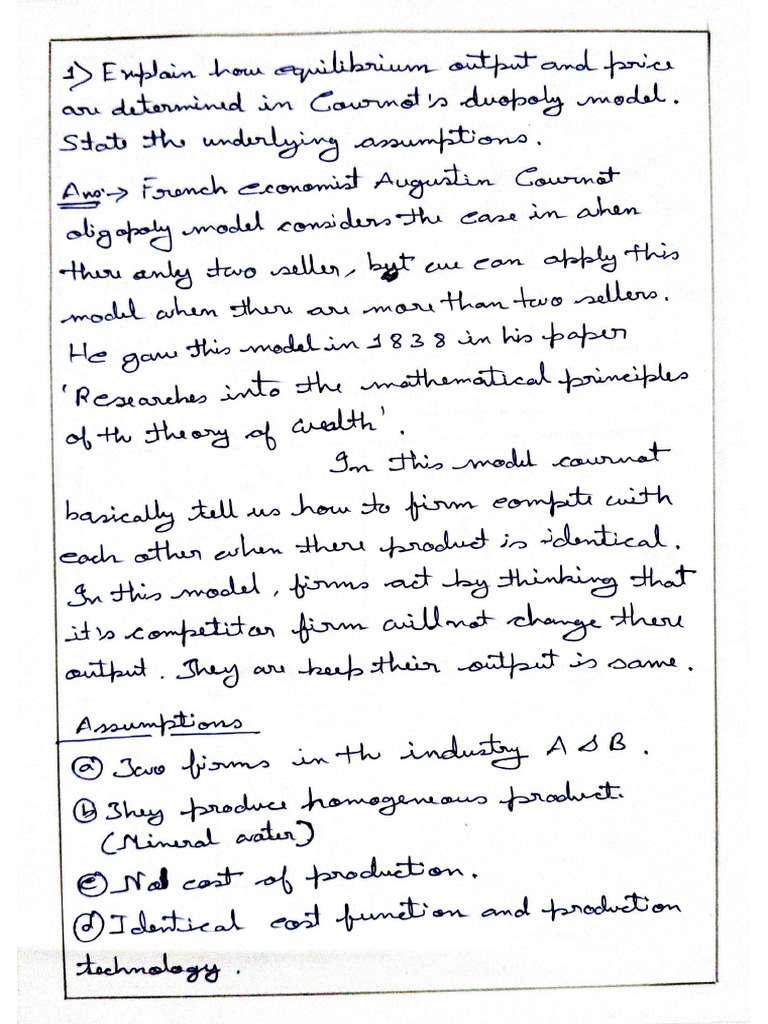 1) Explain how equilibrium output and price
are determined in Cournot's duopoly model.
State the underlying assumptions.
Ans:-> French economist Augustin Cournot
oligopoly model considers the case in when
there only two seller, but we can apply this
model when there are more than two sellers.
He gave this model in 1838 in his paper
'Researches into the mathematical principles
of th theory of wealth'.
In this model cournot
basically tell us how to firm compete with
each other when there product is identical.
In this model, firms act by thinking that
it's competitor firm will not change there
output. They are keep their output is same.
Assumptions
(a) Two firms in th industry A & B.
(b) They produce homogeneous product.
(Mineral water)
(c) No cost of production.
(d) Identical cost function and production
technology.